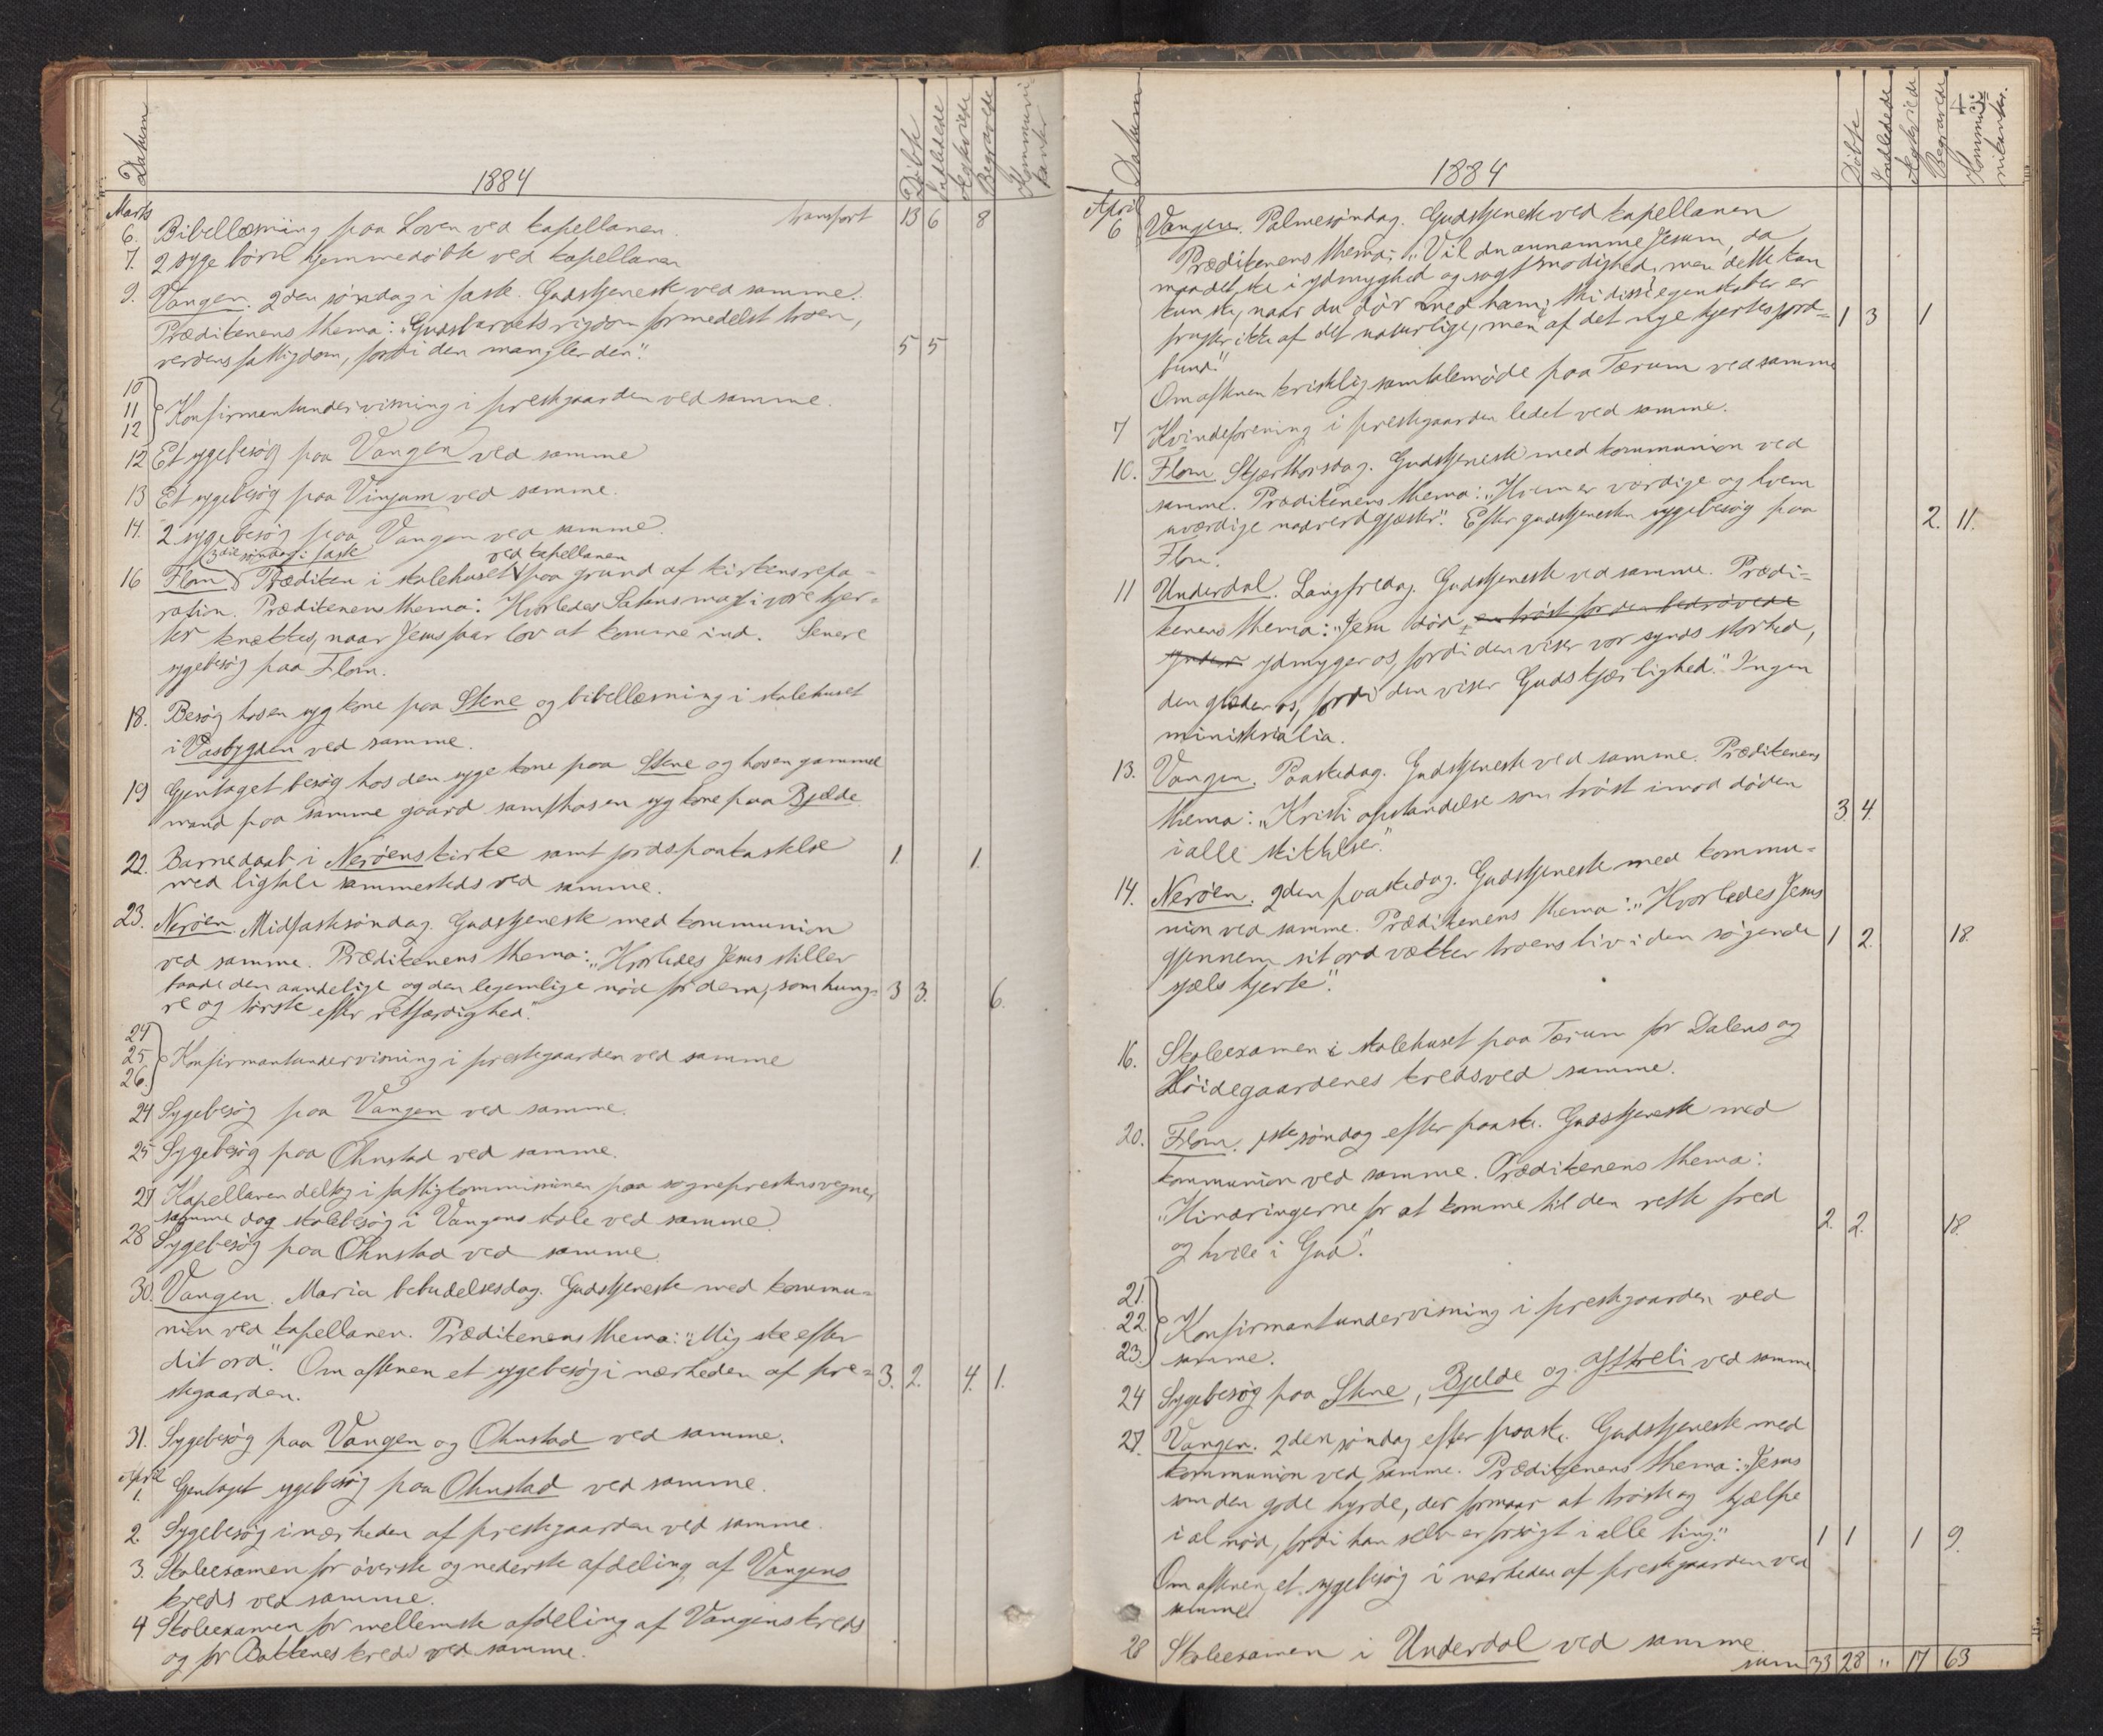 Datum
1884
Døbte
Indledede
Ægteviede
Begravede
Kommuni
kanter
Marts
transport 13 6 8
6. Bibellæsning paa Loven ved kapellanen.
7. 2 syge børn hjemmedøbte ved kapellanen
9. Vangen. 2den søndag i faste. Gudstjeneste ved samme.
Prædikenens thema: "Gudsbarnets rigdom formedelst troen,
verdens fattigdom, fordi den mangler den". 5 5
10
11 Konfirmantundervisning i prestgaarden ved samme.
12
12 Et sygebesøg paa Vangen ved samme
13 Et sygebesøg paa Vinjum ved samme.
14. 2 sygebesøg paa Vangen ved samme.
3die søndag i faste ved kapellanen
16 Flom Præditen i skolehuset paa grund af kirkens repa-
ration. Prædikenens thema: Hvorledes Satans magt i vore hjer-
ter knækkes, naar Jesus faar lov at komme ind. Senere
sygebesøg paa Flom.
18. Besøg hos en syg kone paa Stene og bibellæsning i skolehuset
i Vasbygden ved samme.
19 Gjentaget besøg hos den syge kone paa Stene og hos en gammel
mand paa samme gaard samt hos en syg kone paa Bjelde.
22. Barnedaab i Nerøens kirke samt jordspaakastelse 1. 1.
med ligtale sammesteds ved samme.
23. Nerøen. Midfastesøndag. Gudstjeneste med kommunion
ved samme. Prædikenens thema: "Hvorledes Jesus stiller
baade den aandelige og den legemlige nød for dem, som hung- 3 3. 6.
re og tørste efter retfærdighed."
24
25 Konfirmantundervisning i prestegaarden ved samme
26.
24 Sygebesøg paa Vangen ved samme.
25 Sygebesøg paa Ohnstad ved samme.
27 Kapellanen deltog i fattigkommissionen paa sogneprestens vegne,
samme dag skolebesøg i Vangens skole ved samme.
28 Sygebesøg paa Ohnstad ved samme.
30. Vangen. Maria bebudelsesdag. Gudstjeneste med kommu-
nion ved kapellanen. Prædikenens thema: "Mig ske efter
dit ord". Om aftenen et sygebesøg i nærheden af pre- 3. 2. 4. 1.
stegaarden.
31. Sygebesøg paa Vangen og Ohnstad ved samme.
April
1. Gjentaget sygebesøg paa Ohnstad ved samme.
2. Sygebesøg i nærheden af prestegaarden ved samme.
3. Skoleexamen for øverste og nederste afdeling af Vangens
kreds ved samme.
4 Skoleexamen for mellemste afdeling af Vangens kreds
og for Bakkenes kreds ved samme.
Datum
1884
Døbte
Indledede
Ægteviede
Begravede
Kommu
nikanter.
April
6 Vangen. Palmesøndag. Gudstjeneste ved kapellanen
Prædikenens thema: "Vil du annamme Jesum, da
maa det ske i ydmyghed og sagtmodighed, men dette kan
kun ske, naar du dør med ham; thi disse egenskaber er
frugter ikke af det naturlige, men af det nye hjertes jord- 1 3 1
bund."
Om aftenen kristelig samtalemøde paa Tærum ved samme
7 Kvindeforening i prestegaarden ledet ved samme.
10. Flom. Skjærthorsdag. Gudstjeneste med kommunion ved
samme. Prædikenens thema: "Hvem er værdige og hvem
uværdige nadverdgjæster". Efter gudstjenesten sygebesøg paa 2. 11.
Flom.
11 Underdal. Langfredag. Gudstjeneste ved samme. Prædi-
kenens thema: "Jesu død, en trøst for den bedrøvede
synder ydmyger os, fordi den viser vor synds storhed,
den glæder os, fordi den viser Guds kjærlighed." Ingen
ministerialia.
13. Vangen. Paaskedag. Gudstjeneste ved samme. Prædikenens
thema: "Kristi opstandelse som trøst imod døden 3. 4.
i alle skikkelser."
14. Nerøen. 2den paaskedag. Gudstjeneste med kommu-
nion ved samme. Prædikenens thema: "Hvorledes Jesus
gjennem sit ord vækker troens liv i den søgende 1 2. 18.
sjæls hjerte".
16. Skoleexamen i skolehuset paa Tærum for Dalens og
Høidegaardenes kreds ved samme.
20. Flom. 1ste søndag efter paaske. Gudstjeneste med
kommunion ved samme. Prædikenens thema:
"Hindringerne for at komme til den rette fred 2. 2. 18.
og hvile i Gud".
21.
22. Konfirmantundervisning i prestegaarden ved
23. samme.
24 Sygebesøg paa Stene, Bjelde og ved samme
27. Vangen. 2den søndag efter paaske. Gudstjeneste med
kommunion ved samme. Prædikenens thema: "Jesus
som den gode hyrde, der formaar at trøste og hjælpe
i al nød, fordi han selv er forsøgt i alle ting." 1 1 1 9.
Om aftenen et sygebesøg i nærheden af prestegaarden ved
samme
28 Skoleexamen i Underdal ved samme.
sum 33 28 " 17 63